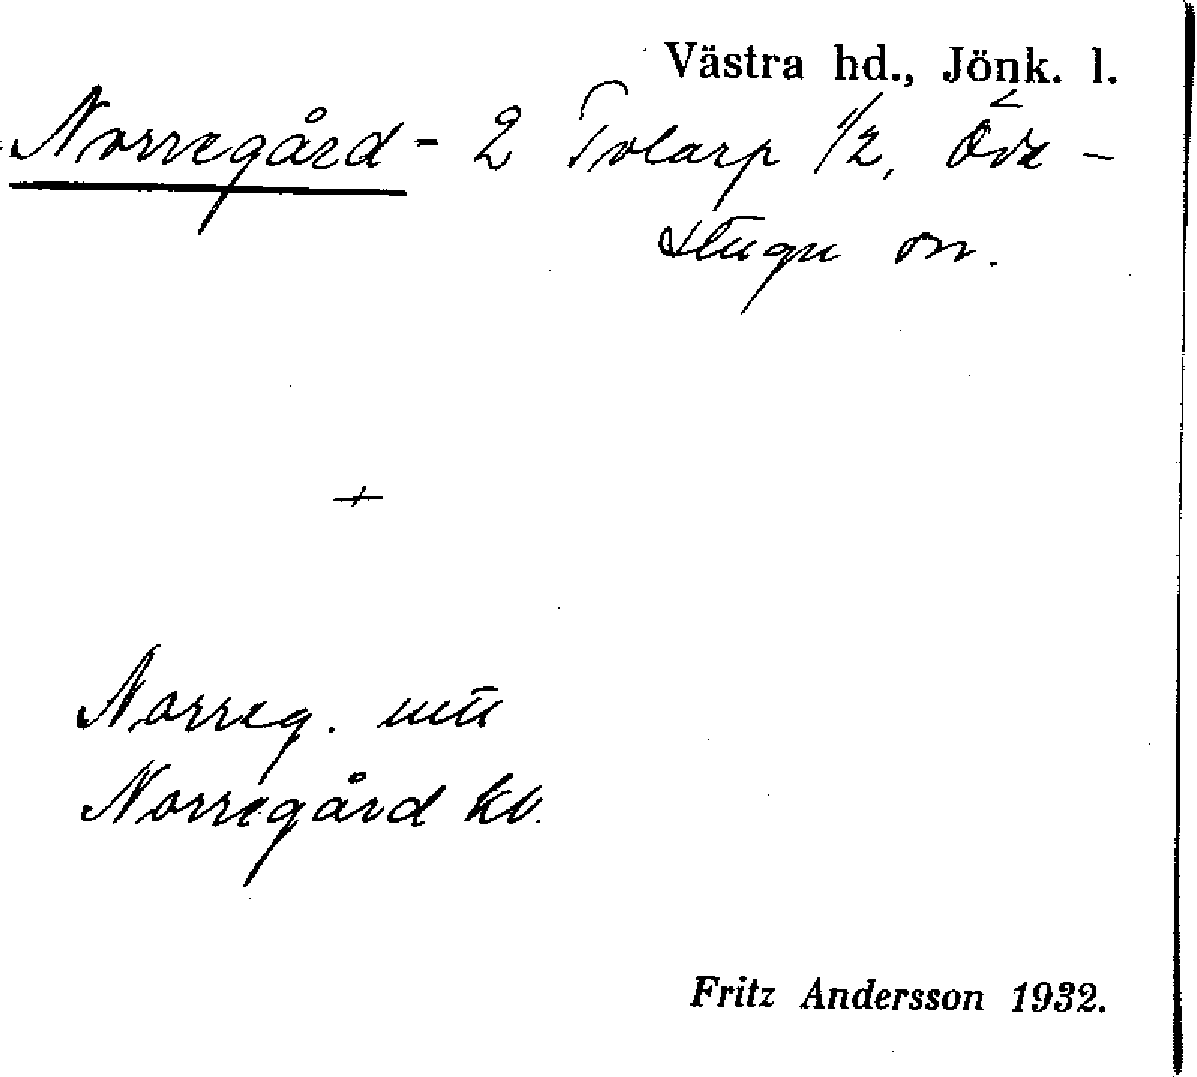 Västra hd., Jönk. l.
Norregård - 2 Tolarp 1/2, Öde-
stugu sn.
+
Norreg. mtl
Norregård kv.
Fritz Andersson 1932.